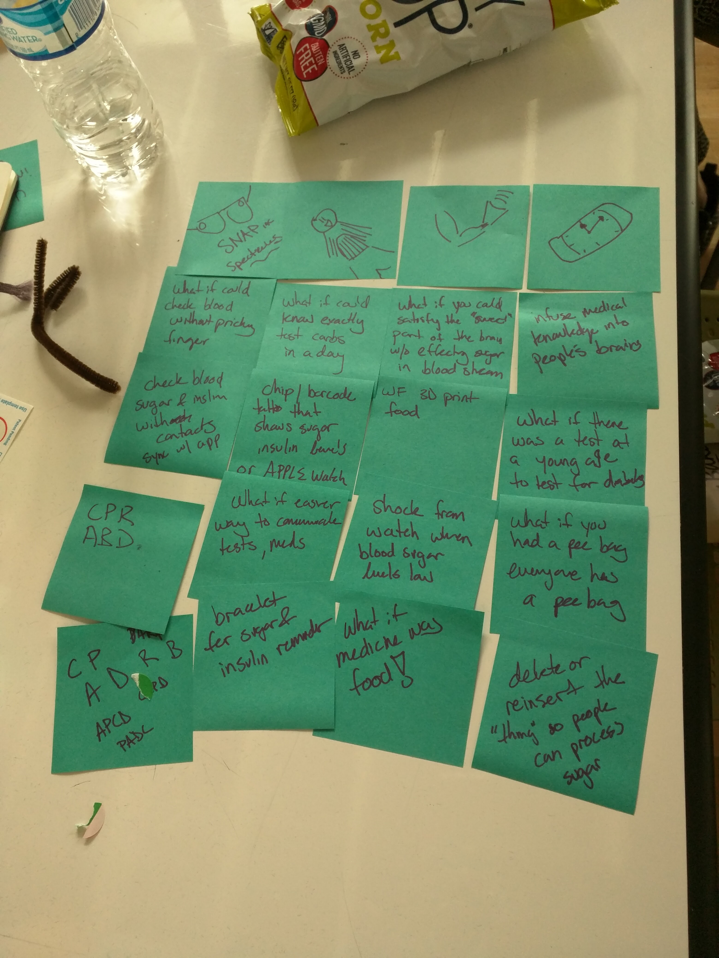 WATER
OP
CORN
GLUTEN
FREE
NO
ARTIFICIAL
INGREDIENTS
SNAP INC
Spectacles
what if could
check blood
without pricking
finger
what if could
know exactly
test carbs
in a day
what if you could
satisfy the "sweet"
part of the brain
w/o effecting sugar
in blood stream
infuse medical
knowledge into
people's brains
check blood
sugar & inslin
with
contacts
sync w/ app
chip/barcode
tattoo that
shows sugar
insulin levels
or APPLE Watch
WF 3D print
food
What if there
was a test at
a young age
to test for diabetes
CPR
ABD.
What if easier
way to communicate
tests, meds
Shock from
watch when
blood sugar
levels low
what if you
had a pee bag
everyone has
a pee bag
CP
A D R B
APCD
PADC
bracelet
for sugar &
insulin reminder
What if
medicine was
food!
delete or
reinsert the
"thing" so people
can process
sugar